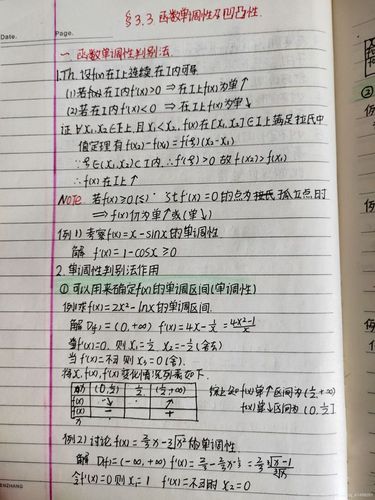 Date.
Page.
§3.3 函数单调性及凹凸性.
一 函数单调性判别法
1.Th. 设f(x)在I上连续 在I内可导
(1)若f(x)在I内f'(x)>0 ⇒ 在I上f(x)为单↑
(2)若在I内f'(x)<0 ⇒ 在I上f(x)为单↓
证 ∀x₁,x₂∈I上 且x₁<x₂, f(x)在[x₁,x₂]∈I上满足拉氏中
值定理 有f(x₂)-f(x₁)=f'(ξ)(x₂-x₁)
∵ξ∈(x₁,x₂)⊂I内 ∴f'(ξ)>0 故f(x₂)>f(x₁)
∴f(x)在I上↑
Note 若f'(x)≥0(≤) 且f'(x)=0的点为孤立点时
⇒ f(x)仍为单↑或(单↓)
例1) 考察f(x)=x-sinx的单调性
解 f'(x)=1-cosx≥0
2.单调性判别法作用
① 可以用来确定f(x)的单调区间(单调性)
例1)求f(x)=2x²-lnx的单调区间.
解 D(f)=(0,+∞) f'(x)=4x-1/x=4x²-1/x
令f'(x)=0. 则x₁=1/2 x₂=-1/2(舍去)
当f'(x)=不∃ 则x₃=0(舍).
将x, f(x), f'(x)变化情况列表如下.
(0,1/2) 1/2 (1/2,+∞)
f(x) ↘ ↗
f'(x) - +
综上知f(x)单↑区间为(1/2,+∞)
f(x)单↓区间为(0,1/2]
例2) 讨论f(x)=2/3x-∛x²的单调性
解 D(f)=(-∞,+∞) f'(x)=2/3-2/3x^(-1/3)=2/3 (∛x-1)/∛x
令f'(x)=0 则x₁=1 f'(x)=不∃时 x₂=0
ENZHANG